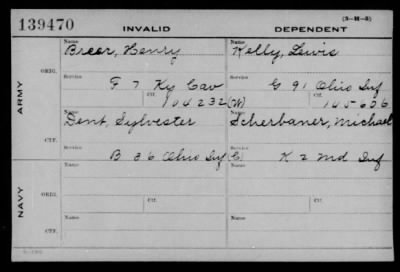 139470
INVALID
DEPENDENT
(3—H—3)
ARMY
ORIG.
Name
Breer, Henry
Service
F 7 Ky Cav
Ctf.
104232
Name
Kelly, Lewis
Service
G 91 Ohio Inf
Ctf.
(W) 105606
CTF.
Name
Dent, Sylvester
Service
B 36 Ohio Inf
Name
Scherbaner, Michael
Service
(C) K 2 Md Inf
NAVY
ORIG.
Name
Service
Ctf.
Name
Service
Ctf.
CTF.
Name
Service
Name
Service